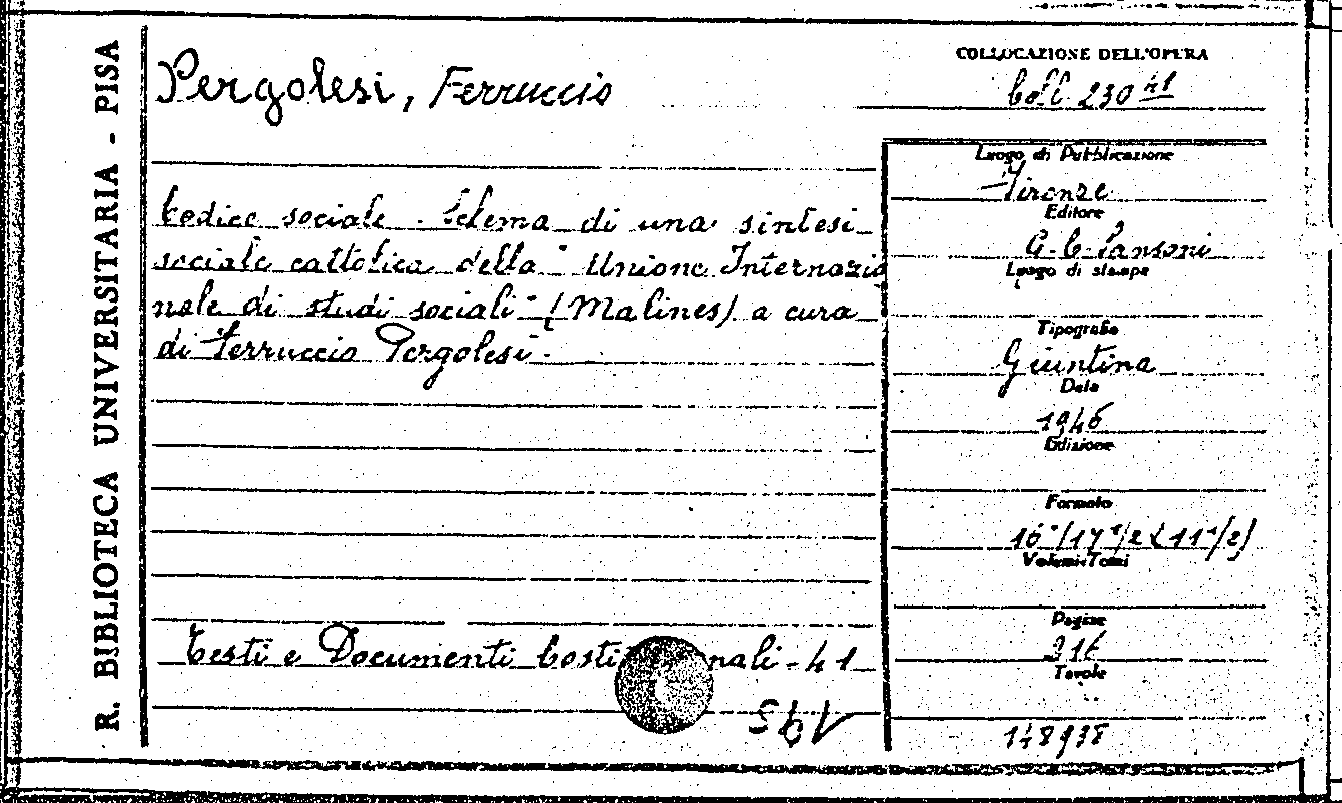 R. BIBLIOTECA UNIVERSITARIA - PISA
Pergolesi, Ferruccio
COLLOCAZIONE DELL'OPERA
Coll. 230 41
Codice sociale - Schema di una sintesi
sociale cattolica della " Unione Internazio
nale di studi sociali " (Malines) a cura
di Ferruccio Pergolesi -
Testi e Documenti Costi nali - 41
Luogo di Pubblicazione
Firenze
Editore
G. C. Sansoni
Luogo di stampa
Tipografia
Giuntina
Data
1946
Edizione
Formato
16° (17 1/2 x 11 1/2)
Volumi-Tomi
Pagine
216
Tavole
148938